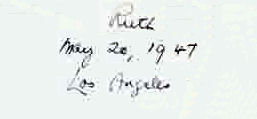 Ruth
May 20, 1947
Los Angeles